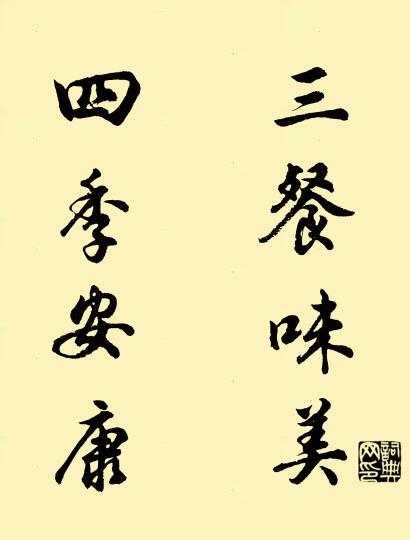 三餐味美
四季安康
詞典网印